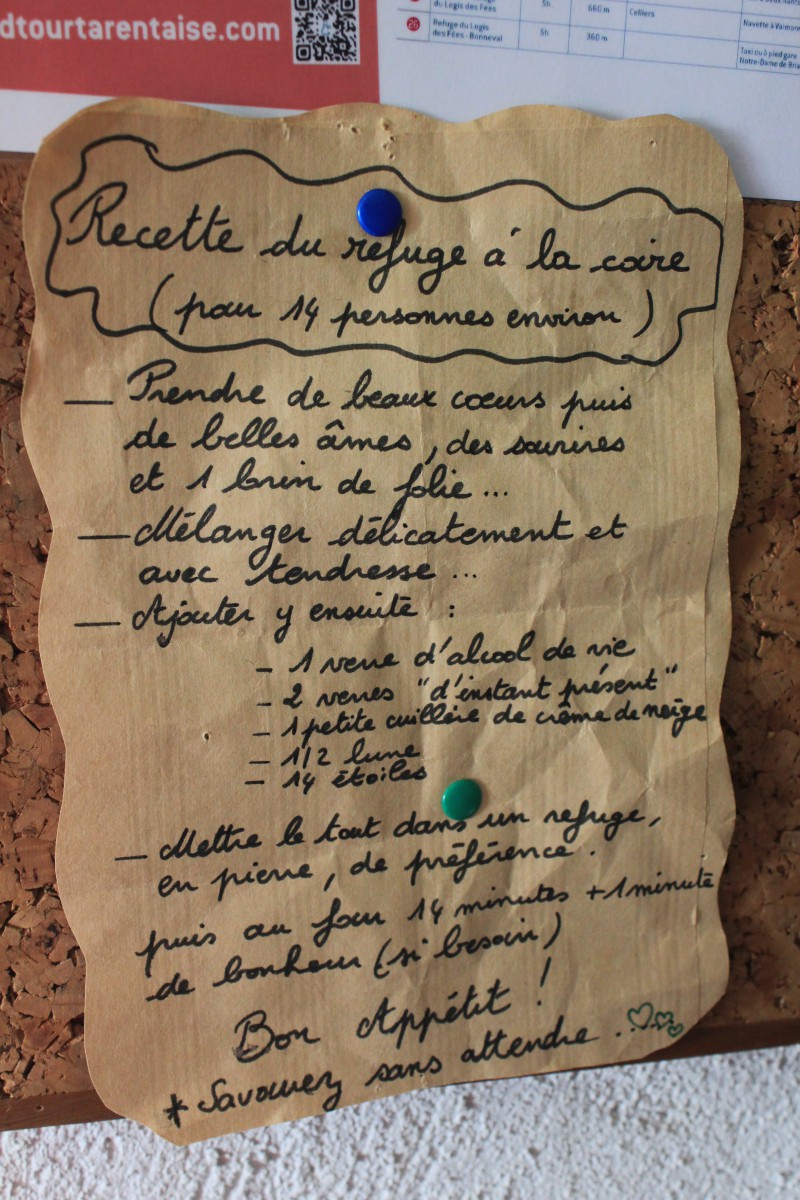 dtourtarentaise.com
du Logis des Fées 5h 660 m Celliers
26 Refuge du Logis des Fées - Bonneval 5h 360 m
Recette du refuge à la coire
(pour 14 personnes environ)
— Prendre de beaux cœurs puis
de belles âmes, des sourires
et 1 brin de folie...
— Mélanger délicatement et
avec tendresse...
— Ajouter y ensuite :
- 1 verre d'alcool de vie
- 2 verres "d'instant présent"
- 1 petite cuillère de crème de neige
- 1/2 lune
- 14 étoiles
— Mettre le tout dans un refuge,
en pierre, de préférence.
puis au four 14 minutes + 1 minute
de bonheur (si besoin)
Bon Appétit !
* Savourez sans attendre...